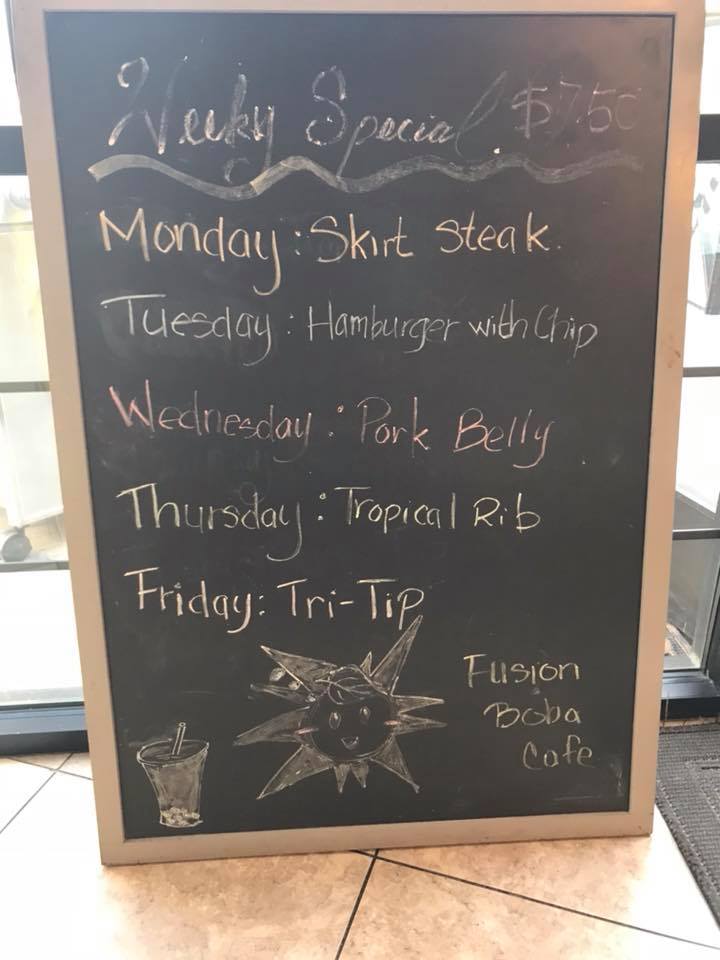 Weeky Special. $7.50
Monday: Skirt Steak.
Tuesday: Hamburger with Chip
Wednesday: Pork Belly
Thursday: Tropical Rib
Friday: Tri-Tip
Fusion
Boba
Cafe